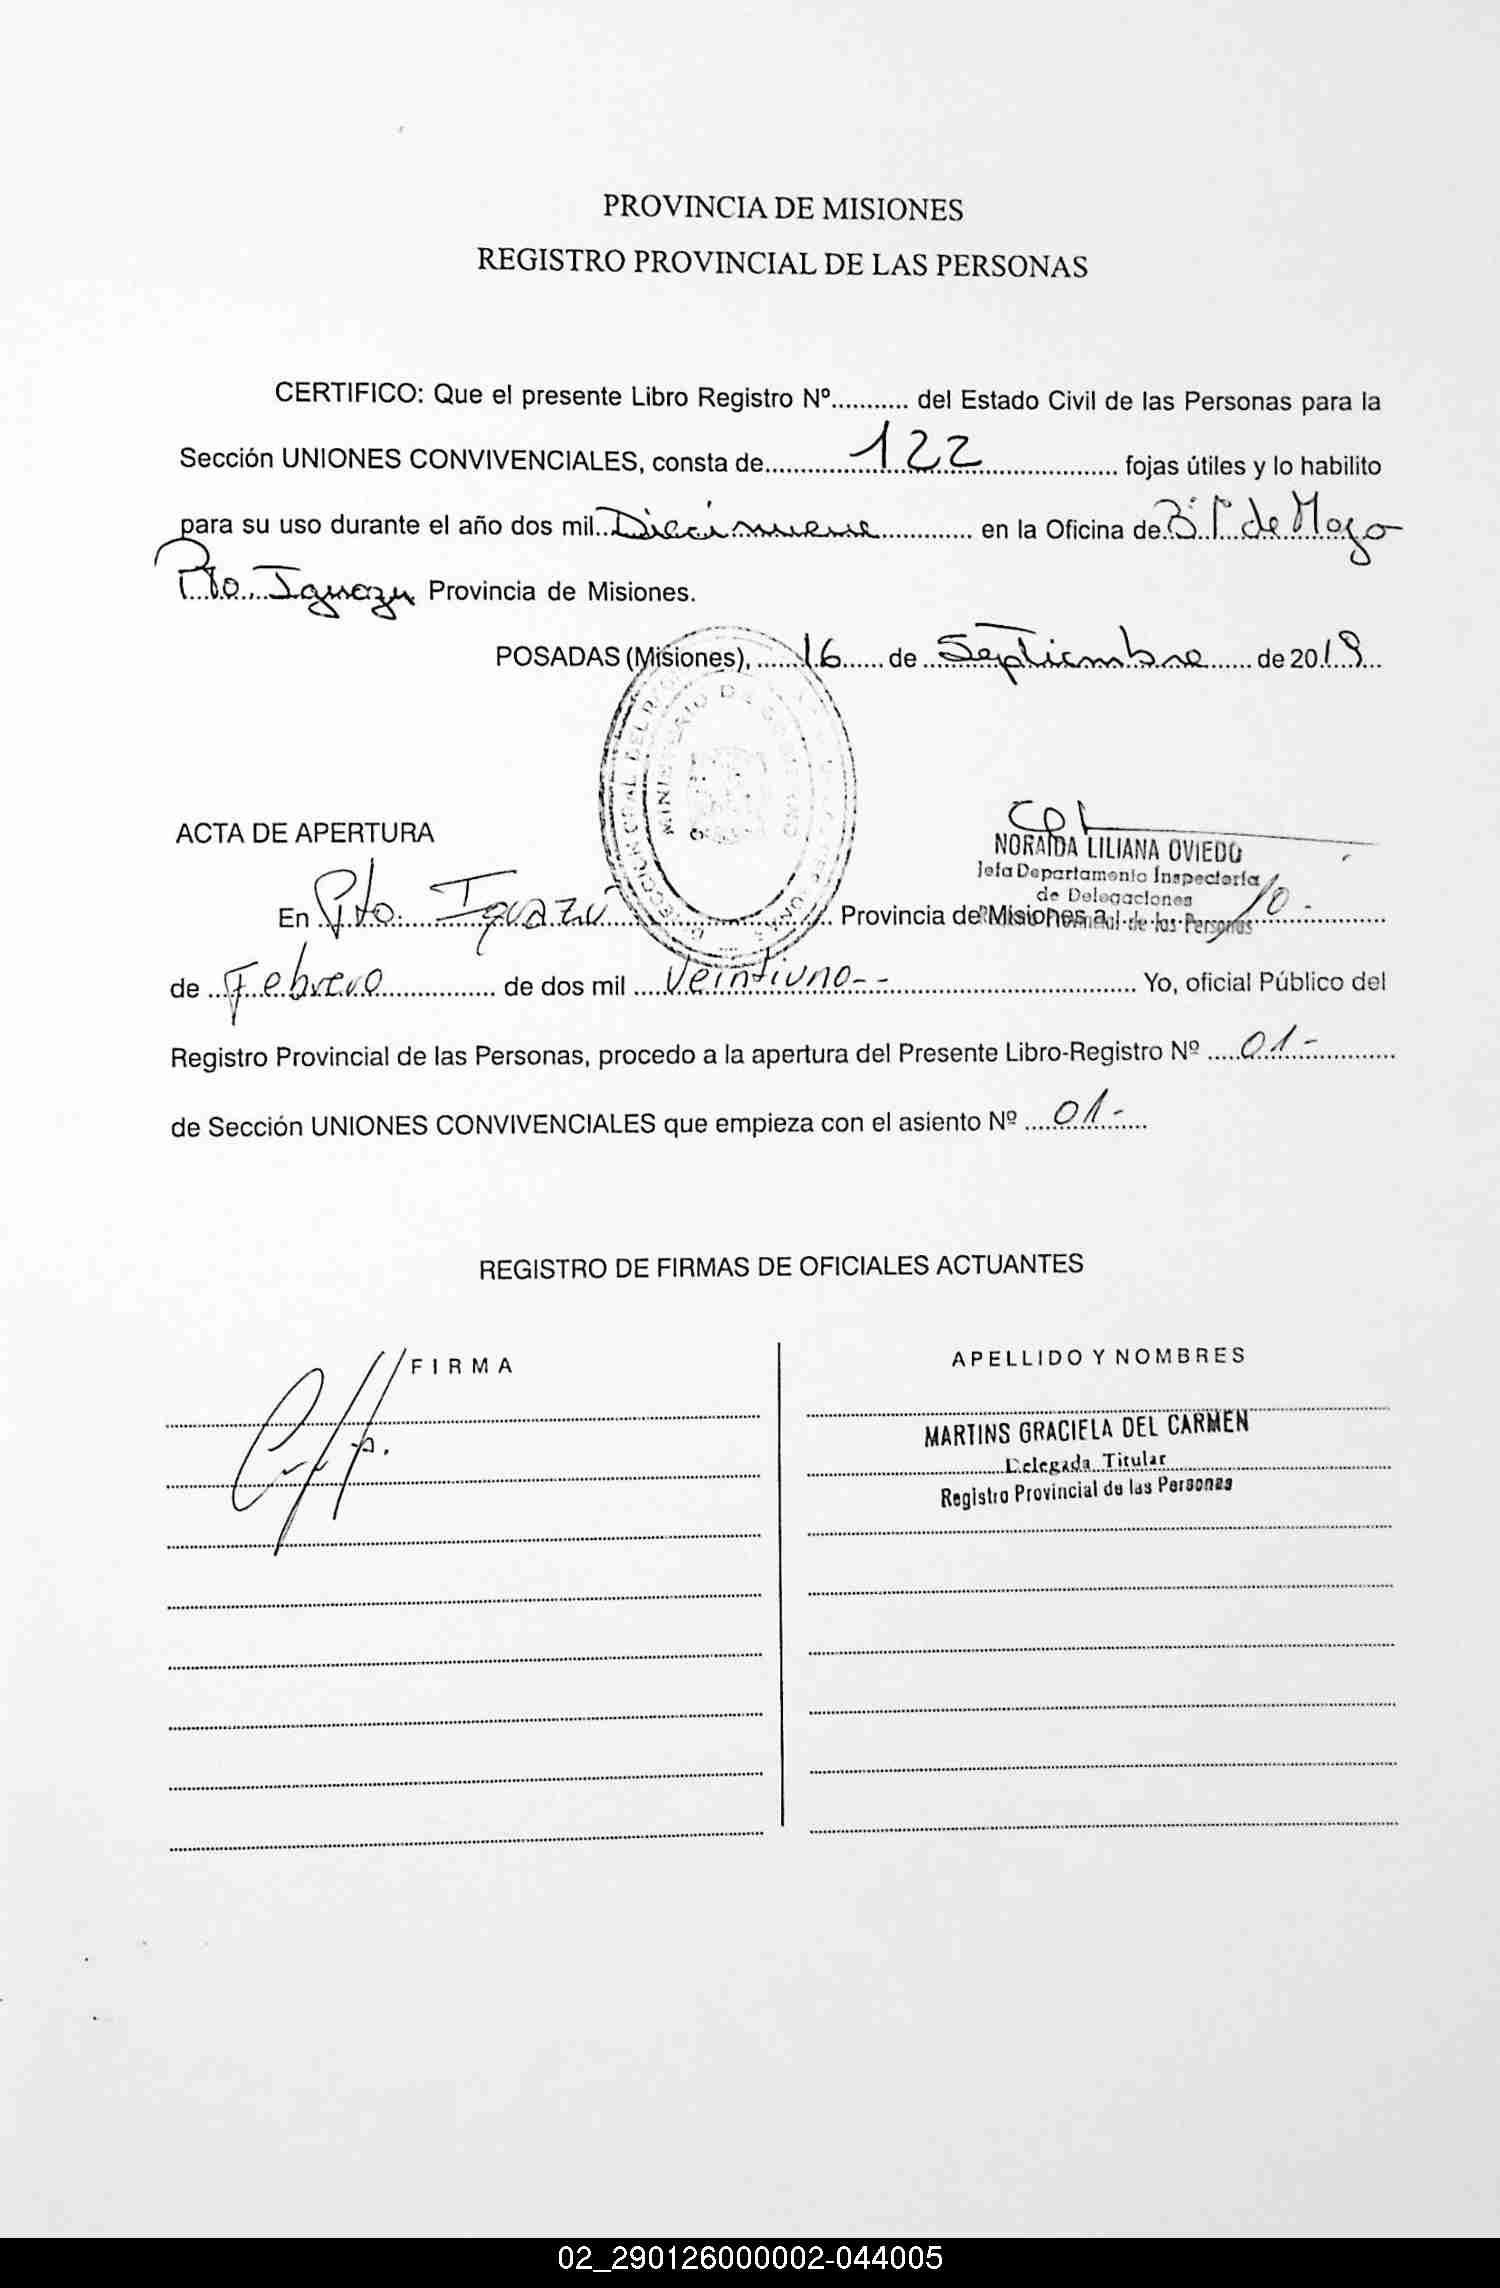 PROVINCIA DE MISIONES
REGISTRO PROVINCIAL DE LAS PERSONAS
CERTIFICO: Que el presente Libro Registro Nº........... del Estado Civil de las Personas para la
Sección UNIONES CONVIVENCIALES, consta de...............122.............. fojas útiles y lo habilito
para su uso durante el año dos mil..Diecinueve.............. en la Oficina de.Bº 1º de Mayo
Pto. Iguazu Provincia de Misiones.
POSADAS (Misiones), ......16...... de ..Septiembre...... de 2019...
ACTA DE APERTURA
NORAIDA LILIANA OVIEDO
Jefa Departamento Inspectoría
de Delegaciones
En Pto. Iguazú.............. Provincia de Misiones a 10 -
de ..Febrero.............. de dos mil ....Veintiuno--.............. Yo, oficial Público del
Registro Provincial de las Personas, procedo a la apertura del Presente Libro-Registro Nº .....01-...........
de Sección UNIONES CONVIVENCIALES que empieza con el asiento Nº ....01-.....
REGISTRO DE FIRMAS DE OFICIALES ACTUANTES
FIRMA
APELLIDO Y NOMBRES
MARTINS GRACIELA DEL CARMEN
Delegada Titular
Registro Provincial de las Personas
02_290126000002-044005